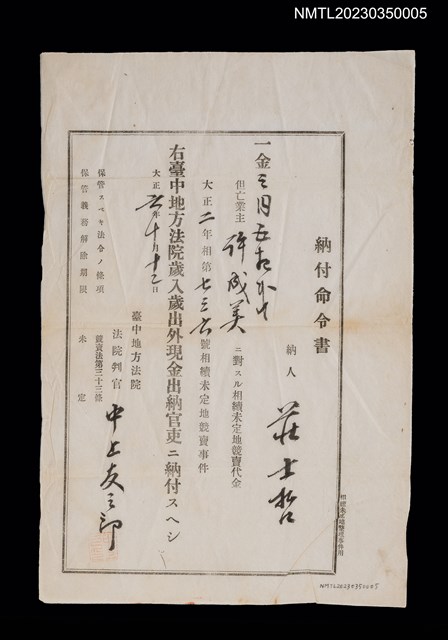 NMTL20230350005
納付命令書
納人 莊士哲
一金三円五拾
但亡業主 許成美 ニ對スル相續未定地競賣代金
大正二年相第七三六號相續未定地競賣事件
右臺中地方法院歲入歲出外現金出納官吏ニ納付スヘシ
大正六年十月十二日
臺中地方法院
法院判官 中上友三郎
保管スベキ法令ノ條項 競賣法第三十三條
保管義務解除期限 未定
NMTL20230350005